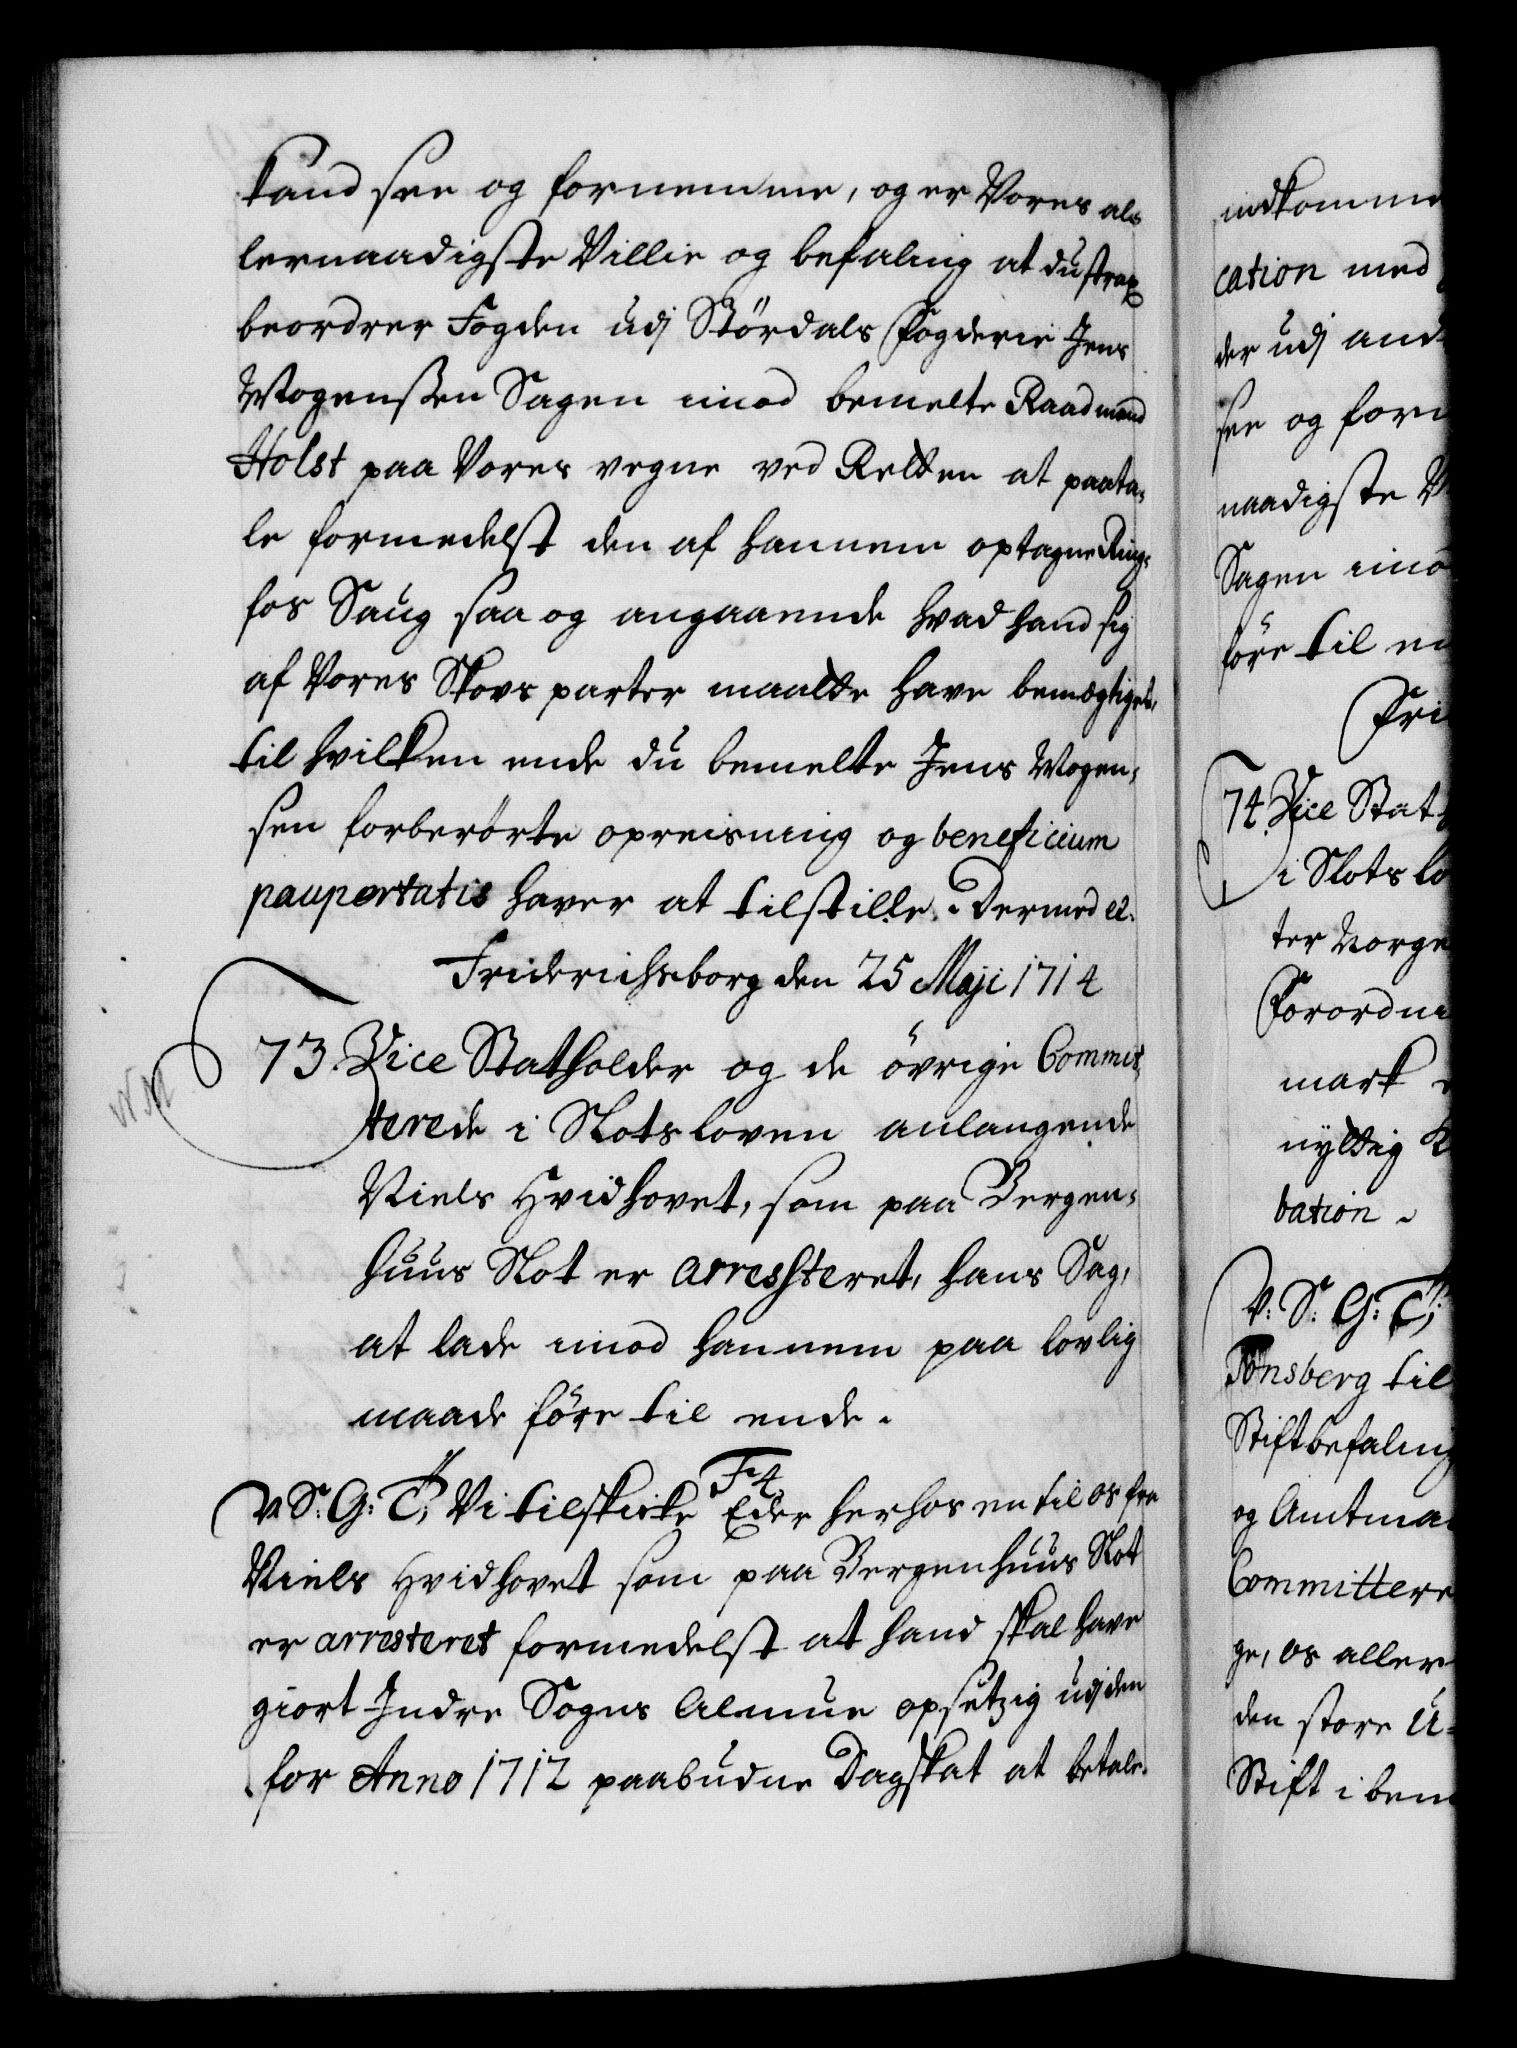 kand see og fornemme, og er Vores al-
lernaadigste Villie og befaling at du strax
beordrer Fogden udj Stördals Fogderie Jens
Mogenssen Sagen imod bemelte Raadmand
Holst paa Vores vegne ved Retten at paata-
le formedelst den af hannem optagne Ring-
fos Saug saa og angaaende hvad hand sig
af Vores Skovs parter maatte have bemægtiget,
til hvilken ende du bemelte Jens Mogen-
sen forberörte opreisning og beneficium
paupertatis haver at tilstille. Dermed etc.
Friderichsborg den 25 Maji 1714
73. Vice Statholder og de övrige Commit-
terede i Slotsloven anlangende
Niels Hvidhovet, som paa Bergen-
huus Slot er arresteret, hans Sag,
at lade imod hannem paa lovlig
maade före til ende.
F4.
V. S: G: T, Vi tilskicke Eder herhos en til os fra
Niels Hvidhovet som paa Bergenhuus Slot
er arresteret formedelst at hand skal have
giort Indre Sogns Almue opsetzig udj den
for Anno 1712 paabudne Dagskat at betale.
indkomme
cation med
der udj and
see og forn
naadigste V
Sagen imo
före til en
Fri
74. Vice Stat-
i Slots lo
ter Norge
Forordni
mark
nyttig
bation.
V: S: G: T,
Tonsberg til
Stiftbefaling
og Amtma
Committere
ge, os aller
den store U-
Stift i bem